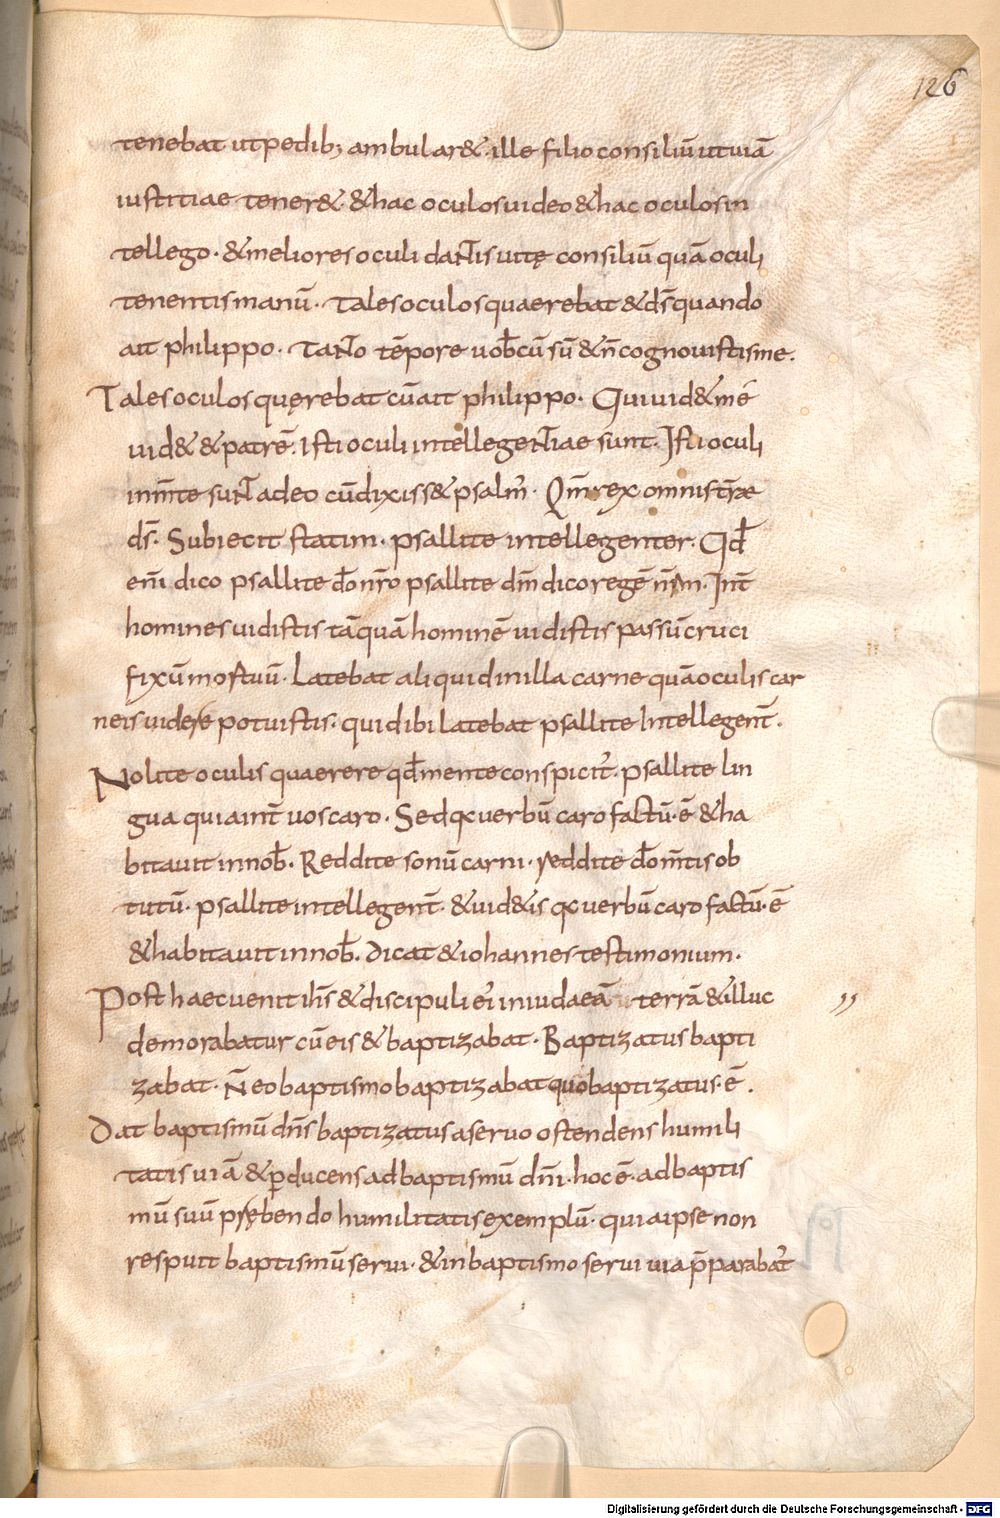 126
tenebat utpedib; ambular& ille filio consiliū ut uiā
iustitiae tener& &hac oculos uideo &hac oculos in
tellego · & meliores oculi dantis uitę consiliū quā oculi
tenentis manū · Tales oculos quaerebat & ds̄ quando
ait philippo · Tanto tēpore uob̄cū sū & n̄ cognouistis me.
Tales oculos quęrebat cū ait philippo · Qui uid& me
uid& & patrē. Isti oculi intellegentiae sunt · Isti oculi
in m̄te sunt adeo cū dixiss& psalm̄ · Qm̄ rex omnis t̄rae
ds̄ · Subiecit statim · psallite intellegenter · Qd̄
eni̅ dico psallite dō nr̄o psallite dm̄ dico regē nr̄m · Int̄
homines uidistis tāquā hominē uidistis passū cruci
fixū mortuū · Latebat aliquid in illa carne quā oculis car
neis uidere potuistis · quid ibi latebat psallite Intellegent̄ ·
Nolite oculis quaerere qd̄ mente conspicit̄ · psallite lin
gua quia int̄ uos caro · Sed qx uerbū caro factū · ē & ha
bitauit in nob̄ · Reddite sonū carni · reddite dō m̄tis ob
tutū · psallite intellegent̄ · & uid&is qx uerbū caro factū · ē
& habitauit in nob̄ · dicat & iohannes testimonium ·
Post haec uenit ih̄s & discipuli ei̅ in iudaeā terrā & illuc ,,
demorabatur cū eis & baptizabat · Baptizatus bapti
zabat · N̄ eo baptismo baptizabat quo baptizatus · ē .
Dat baptismū dn̄s baptizatus a seruo ostendens humili
tatis uiā & p̱ducens ad baptismū dn̄i · hoc ē · ad baptis
mū suū pręben do humilitatis exemplū · quia ipse non
respuit baptismū serui · & in baptismo serui uia p̄parabat̄
Digitalisierung gefördert durch die Deutsche Forschungsgemeinschaft - DFG